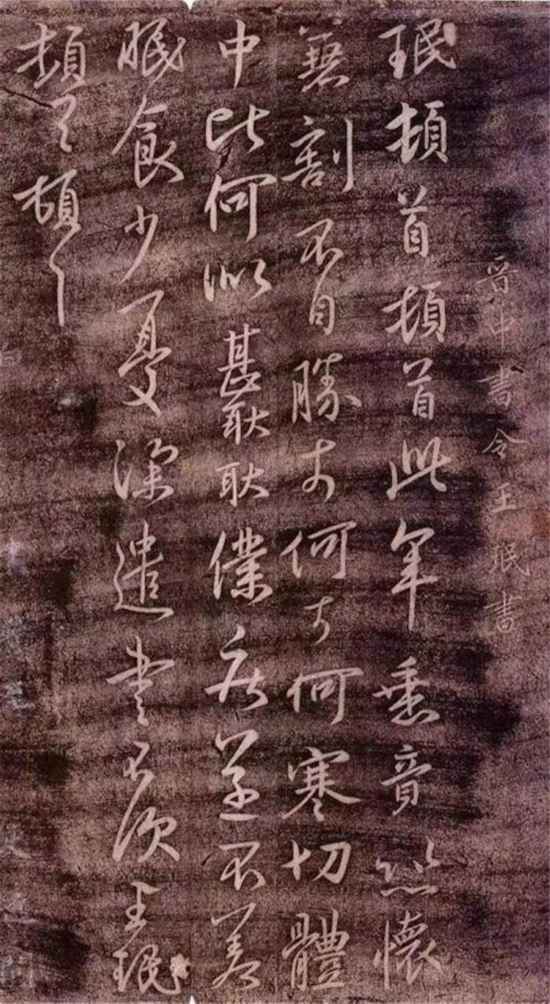 晉中書令王珉書
珉頓首頓首此年垂竟悲懷
兼割不自勝奈何奈何寒切體
中比何似甚耿耿僕疾遂不差
眠食少憂深遣書不次王珉
頓首頓首